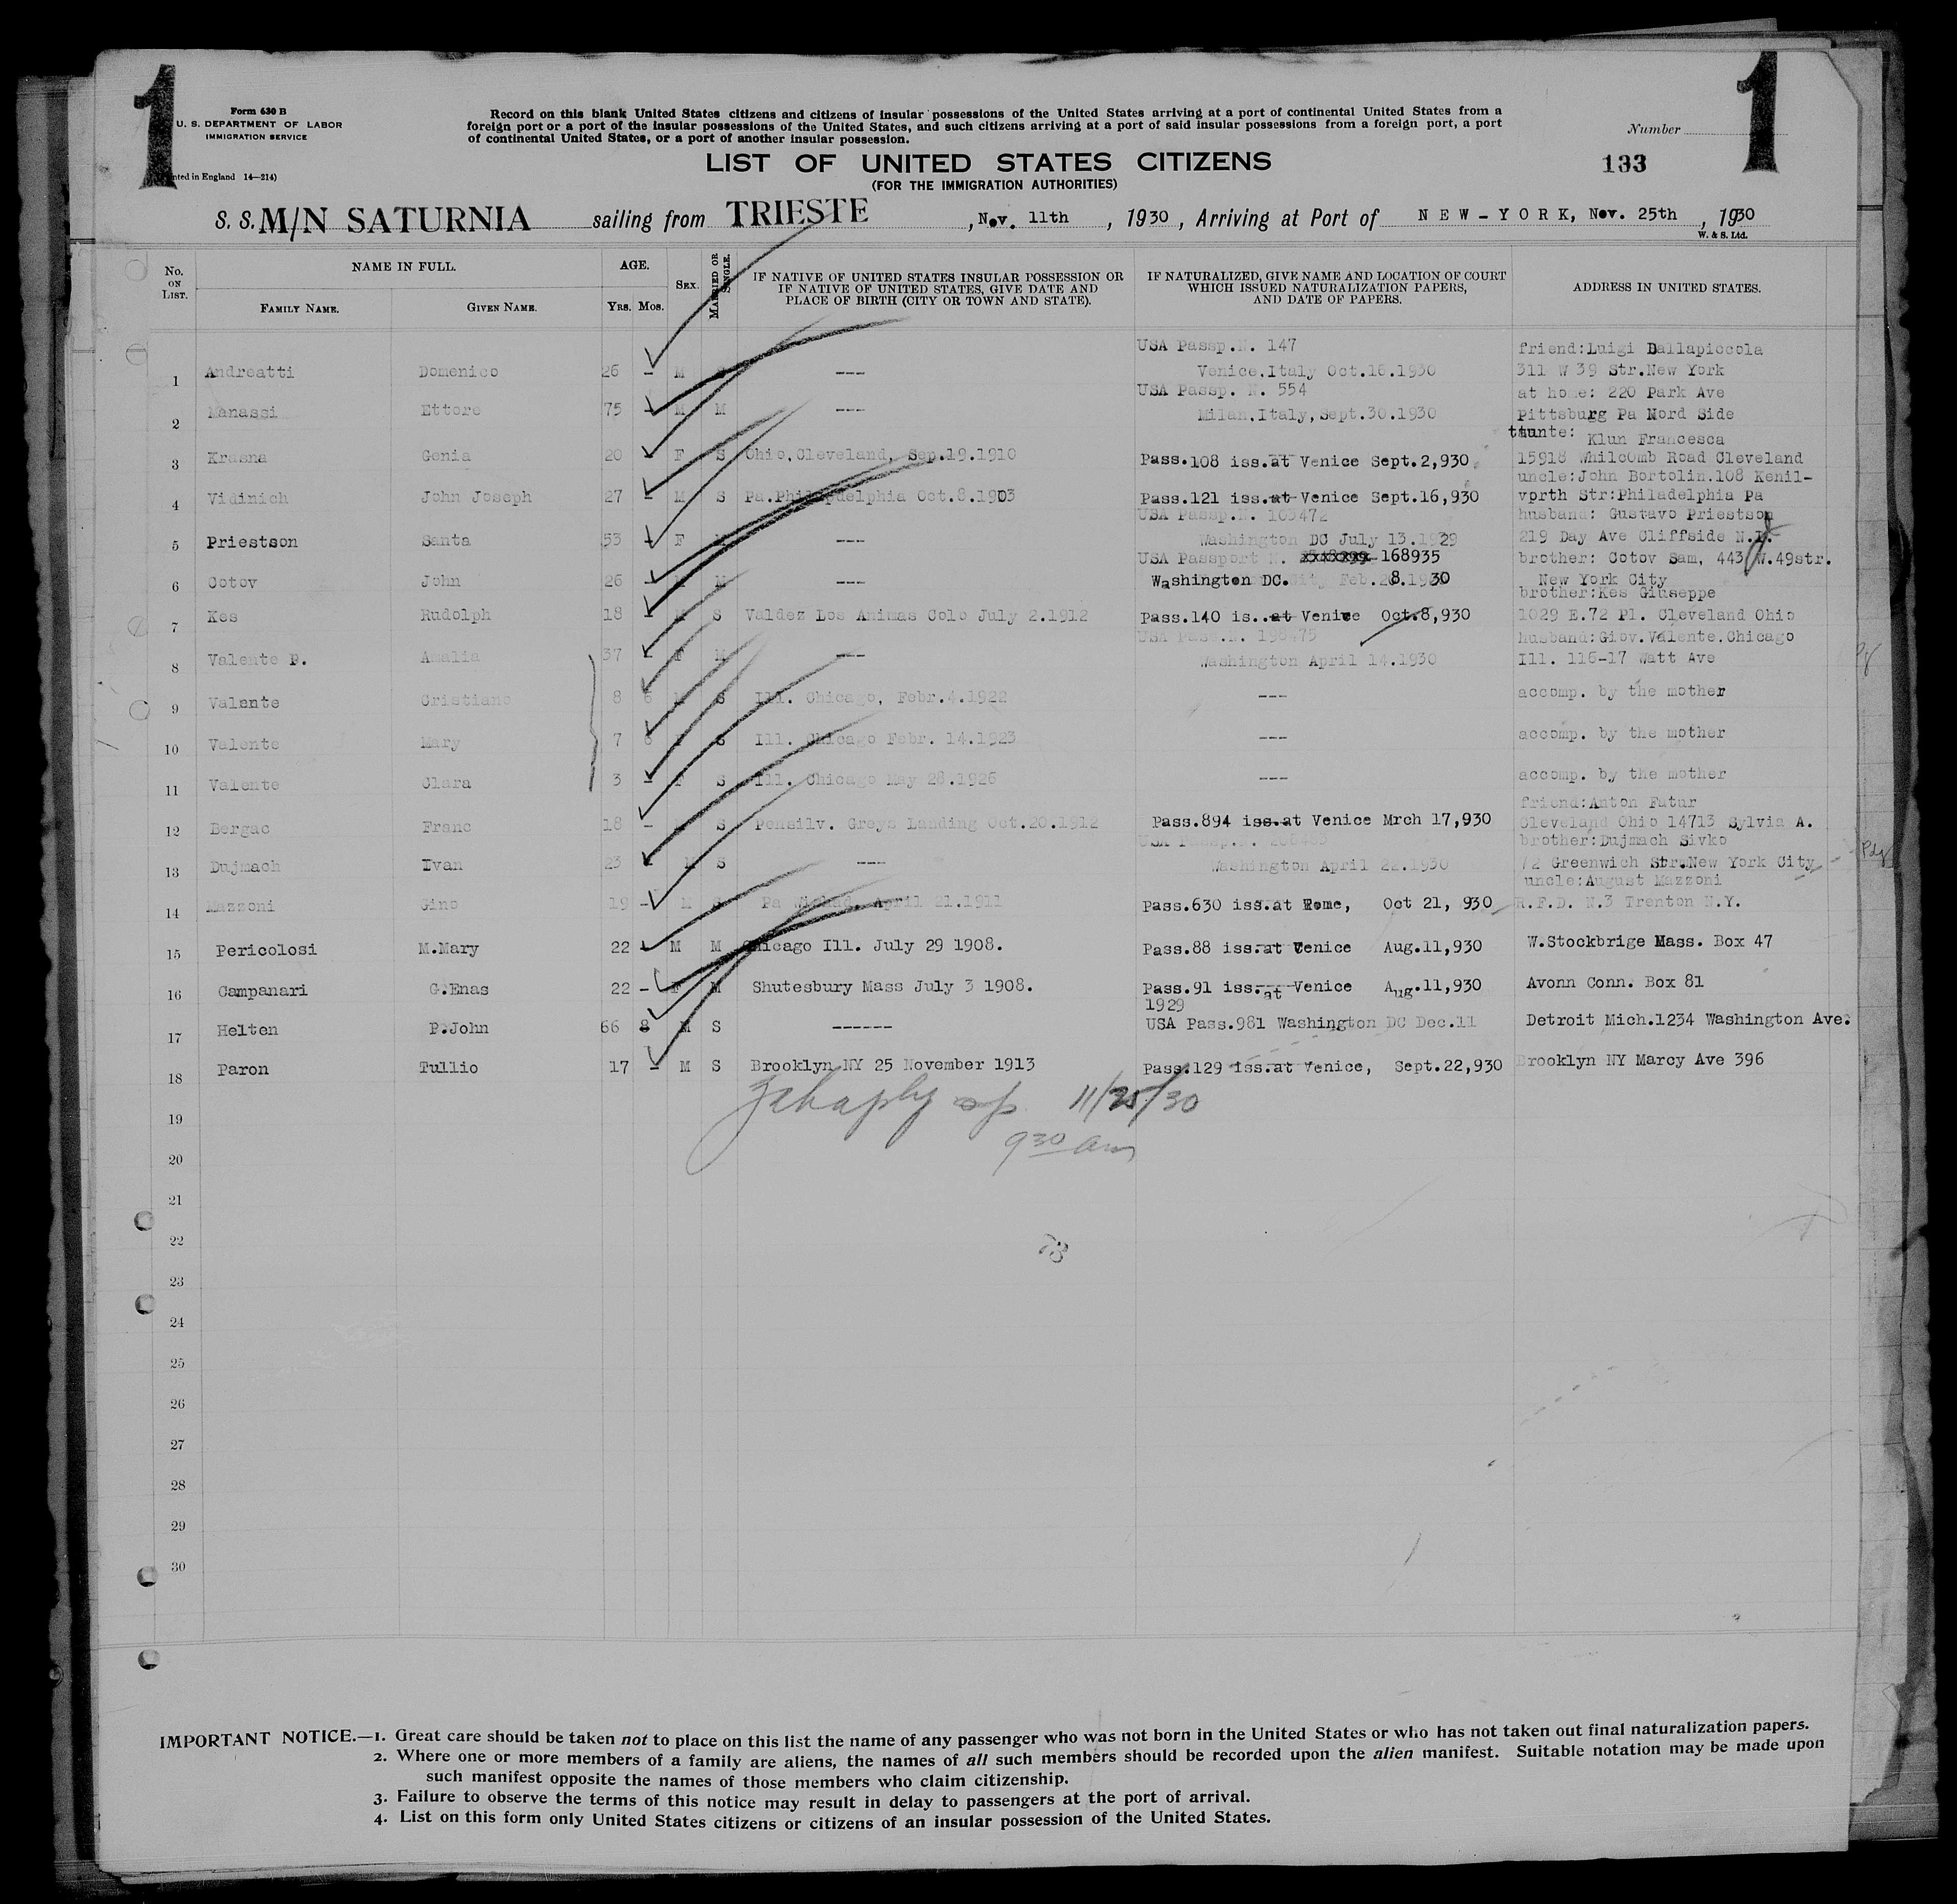 1
1
Form 630 B
U. S. DEPARTMENT OF LABOR
IMMIGRATION SERVICE
nted in England 14—214)
Record on this blank United States citizens and citizens of insular possessions of the United States arriving at a port of continental United States from a
foreign port or a port of the insular possessions of the United States, and such citizens arriving at a port of said insular possessions from a foreign port, a port
of continental United States, or a port of another insular possession.
Number
133
LIST OF UNITED STATES CITIZENS
(FOR THE IMMIGRATION AUTHORITIES)
S. S. M/N SATURNIA sailing from TRIESTE , Nov. 11th , 1930 , Arriving at Port of NEW-YORK, Nov. 25th , 1930
W. & S. Ltd.
No. ON LIST.
NAME IN FULL.
FAMILY NAME.
GIVEN NAME.
AGE.
YRS. MOS.
SEX.
MARRIED OR SINGLE.
IF NATIVE OF UNITED STATES INSULAR POSSESSION OR
IF NATIVE OF UNITED STATES, GIVE DATE AND
PLACE OF BIRTH (CITY OR TOWN AND STATE).
IF NATURALIZED, GIVE NAME AND LOCATION OF COURT
WHICH ISSUED NATURALIZATION PAPERS,
AND DATE OF PAPERS.
ADDRESS IN UNITED STATES.
USA Passp.N. 147 friend:Luigi Dallapiccola
1 Andreatti Domenico 26 - M S --- Venice,Italy Oct.16.1930 311 W 39 Str.New York
USA Passp. N. 554 at home: 220 Park Ave
2 Manassi Ettore 75 - M M --- Milan,Italy,Sept.30.1930 Pittsburg Pa Nord Side
Klun Francesca
3 Krasna Genia 20 - F S Ohio,Cleveland, Sep.19.1910 Pass.108 iss.at Venice Sept.2,930 15918 Whilcomb Road Cleveland
uncle:John Bortolin.108 Kenil-
4 Vidinich John Joseph 27 - M S Pa.Philadelphia Oct.8.1903 Pass.121 iss.at Venice Sept.16,930 vorth Str:Philadelphia Pa
USA Passp.N. 103472 husband: Gustavo Priestson
5 Priestson Santa 53 - F M --- Washington DC July 13.1929 219 Day Ave Cliffside N.J.
USA Passport N. 168935 brother: Cotov Sam, 443 W.49str.
6 Cotov John 26 - M M --- Washington DC. Feb. 8.1930 New York City
brother:Kes Giuseppe
7 Kes Rudolph 18 - M S Valdez Los Animas Colo July 2.1912 Pass.140 is..at Venice Oct.8,930 1029 E.72 Pl. Cleveland Ohio
USA Pass.N. 196475 husband:Giov.Valente,Chicago
8 Valente P. Amalia 37 - F M --- Washington April 14.1930 Ill. 116-17 Watt Ave
9 Valente Cristiano 8 6 M S Ill. Chicago, Febr.4.1922 --- accomp. by the mother
10 Valente Mary 7 6 F S Ill. Chicago Febr. 14.1923 --- accomp. by the mother
11 Valente Clara 3 - F S Ill. Chicago May 28.1926 --- accomp. by the mother
friend:Anton Fatur
12 Bergac Franc 18 - M S Pensilv. Greys Landing Oct.20.1912 Pass.894 iss.at Venice Mrch 17,930 Cleveland Ohio 14713 Sylvia A.
USA Passp.N. brother:Dujmach Sivko
13 Dujmach Ivan 23 - M S --- Washington April 22.1930 72 Greenwich Str.New York City
uncle:August Mazzoni
14 Mazzoni Gino 19 - M S Pa April 21.1911 Pass.630 iss.at Rome, Oct 21, 930 R.F.D. N.3 Trenton N.Y.
15 Pericolosi M.Mary 22 - M M Chicago Ill. July 29 1908. Pass.88 iss.at Venice Aug.11,930 W.Stockbrige Mass. Box 47
16 Campanari G.Enas 22 - F M Shutesbury Mass July 3 1908. Pass.91 iss.at Venice Aug.11,930 Avonn Conn. Box 81
1929
17 Helten P.John 66 8 M S ------ USA Pass.981 Washington DC Dec.11 Detroit Mich.1234 Washington Ave.
18 Paron Tullio 17 - M S Brooklyn NY 25 November 1913 Pass.129 iss.at Venice, Sept.22,930 Brooklyn NY Marcy Ave 396
11/25/30
19
9 30 am
20
21
22
23
24
25
26
27
28
29
30
IMPORTANT NOTICE.—1. Great care should be taken not to place on this list the name of any passenger who was not born in the United States or who has not taken out final naturalization papers.
2. Where one or more members of a family are aliens, the names of all such members should be recorded upon the alien manifest. Suitable notation may be made upon
such manifest opposite the names of those members who claim citizenship.
3. Failure to observe the terms of this notice may result in delay to passengers at the port of arrival.
4. List on this form only United States citizens or citizens of an insular possession of the United States.